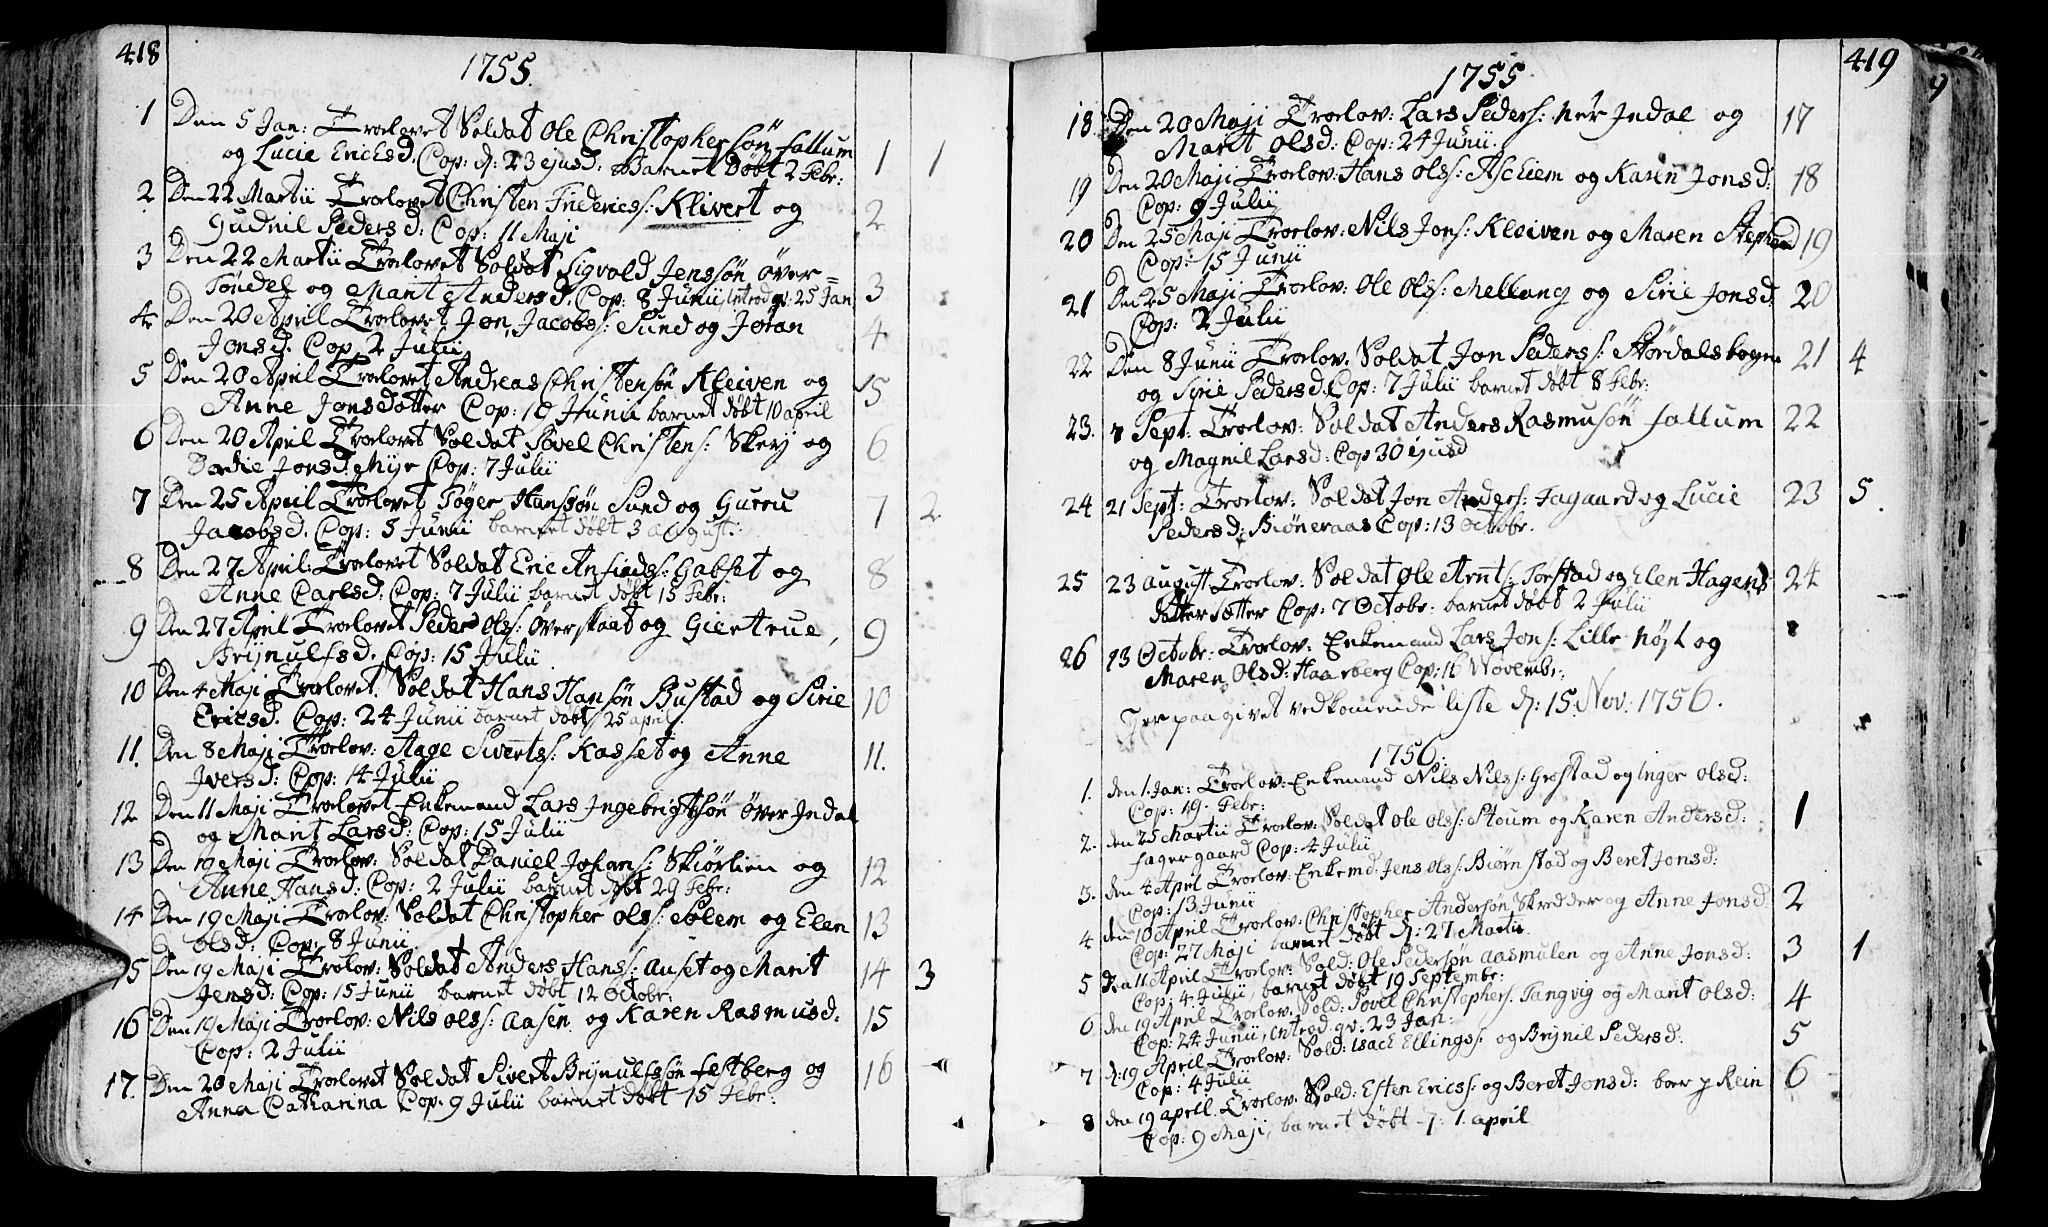 418
1755.
1 Den 5 Jan: Troelovet Soldat Ole Christophersøn fallum 1 1
og Lucie Ericksd. Cop: d: 23 ejusd: Barnet Døbt 2 Febr:
2. Den 22 Martii Troelovet Christen Friderichs: Klivert og 2
Gudnil Pedersd: Cop: 11 Maji
3 Den 22 Martii Troelovet Soldat Sigvold Jenssøn över= 3
Tøndel og Marit Andersd. Cop: 8 Junii, introd qv: 25 Jan
4 Den 20 April Troelovet Jon Jacobs: Sund og Jøran 4
Jonsd. Cop 2 Julii
5 Den 20 April Troelovet Andreas Christensøn Kleiven og 5
Anne Jonsdotter Cop: 19 Junii barnet døbt 10 april
6 Den 20 April Troelovet Soldat Povel Christens: Skerj og 6
Jonsd. Myr Cop: 7 Julii
7 Den 25 April Troelovet Tøger Hanssøn Sund og Gurru 7 2
Jacobsd. Cop: 5 Junii barnet døbt 3 august:
8 Den 27 April: Troelovet Soldat Eric Anfinds: Gabset og 8
Anne Carlsd. Cop: 7 Julii barnet døbt 15 Febr:
9 Den 27 April Troelovet Peder Ols: Överskaat og Giertrue 9
Brijnulfsd. Cop: 15 Julii
10 Den 4 Maji Troelovet Soldat Hans Hansøn Bustad og Sirie 10
Ericsd. Cop: 24 Junii barnet døbt 25 april
11. Den 8 Maji Troelov: Aage Siverts: Kasset og Anne 11.
Iversd: Cop: 14 Julii
12 Den 11 Maji Troelovet Enkemand Lars Ingebrigtsøn över Indal
og Marit Larsd: Cop: 15 Julii
13 Den 19 Maji Troelov: Soldat Daniel Johans: Skiørlien og 12
Anne Hansd: Cop: 2 Julii barnet døbt 29 Febr:
14 Den 19 Maji Troelov: Soldat Christopher Ols: Solem og Elen 13
Olsd: Cop: 8 Junii
15 Den 19 Maji Trolov: Soldat Anders Hans: Auset og Marit 14 3
Jensd: Cop: 15 Junii barnet døbt 12 Octobr:
16 Den 19 Maji Troelov: Nils Ols: Aasen og Karen Rasmusd: 15
Cop: 2 Julii
17. Den 20 Maji Troelovet Soldat Sivert Brijnulfssøn festberg og 16
Anna Catharina Cop: 9 Julii barnet døbt 15 Febr:
419
1755
18. Den 20 Maji Troelov: Lars Peders: När Indal og 17
Marit Olsd: Cop: 24 Junii.
19 Den 20 Maji Troelov: Hans Ols: Aschiem og Karen Jonsd: 18
Cop: 9 Julii
20 Den 25 Maji Troelov: Nils Jons: Kleiven og Maren Stephand 19
Cop: 15 Junii
21 Den 25 Maji Troelov: Ole Ols: Mellang og Sirie Jonsd. 20
Cop: 2 Julii
22 Den 8 Junii Troelov: Soldat Jon Peders: Størdalsbogen 21 4
og Sirie Pedersd. Cop: 7 Julii barnet døbt 8 Febr:
23. 7 Sept: Troelov: Soldat Anders Rasmusøn fallum 22
og Magnil Larsd: Cop 30 ejusd
24 21 Sept: Troelov: Soldat Jon Anders: Fagaard og Lucie 23 5.
Pedersd: Biøneraas Cop: 13 Octobr.
25 23 august Troelov: Soldat Ole Arnts: Torstad og Elen Hagens 24
dotter Sætter Cop: 7 Octobr: barnet døbt 2 Julii
26 13 Octobr: Troelov: Enkemand Lars Jons: Lille Nøjst og
Maren Olsd: Haarberg Cop: 16 Novembr:
Her paa givet vedkomende liste d: 15 Nov: 1756.
1756.
1. den 1. Jan: Troelov: Enkemand Nils Nils: Grøstad og Inger Olsd:
Cop: 19. Febr:
2. den 25 Martii Troelov: Soldat Ole Ols: Stoum og Karen Andersd: 1
fagergaard Cop: 4 Julii
3. den 4 April Troelov: Enkemd Jens Ols: Biørnstad og Beret Jonsd:
Cop: 13 Junii
4 den 10 April Troelov: Christopher Andersøn Skredder og Anne Jonsd. 2
Cop: 27 Maji barnet døbt d: 27 Martii
5 den 11 April Troelov: Sold: Ole Pedersøn Aasmulen og Anne Jonsd: 3 1
Cop: 4 Julii, barnet døbt 19 Septembr:
6 den 19 April Troelov: Sold: Povel Christophers: Tangvig og Marit Olsd: 4
Cop: 24 Junii, introd. qv. 23 Jan:
7 d: 19 April Troelov: Sold: Isack Ellings: og Brijnil Pedersd. 5
Cop: 4 Julii
8 den 19 apell Troelov: Sold: Esten Erics: og Beret Jonsd: boer p Rein 6
Cop: 9 Maji, barnet døbt d: 1. april